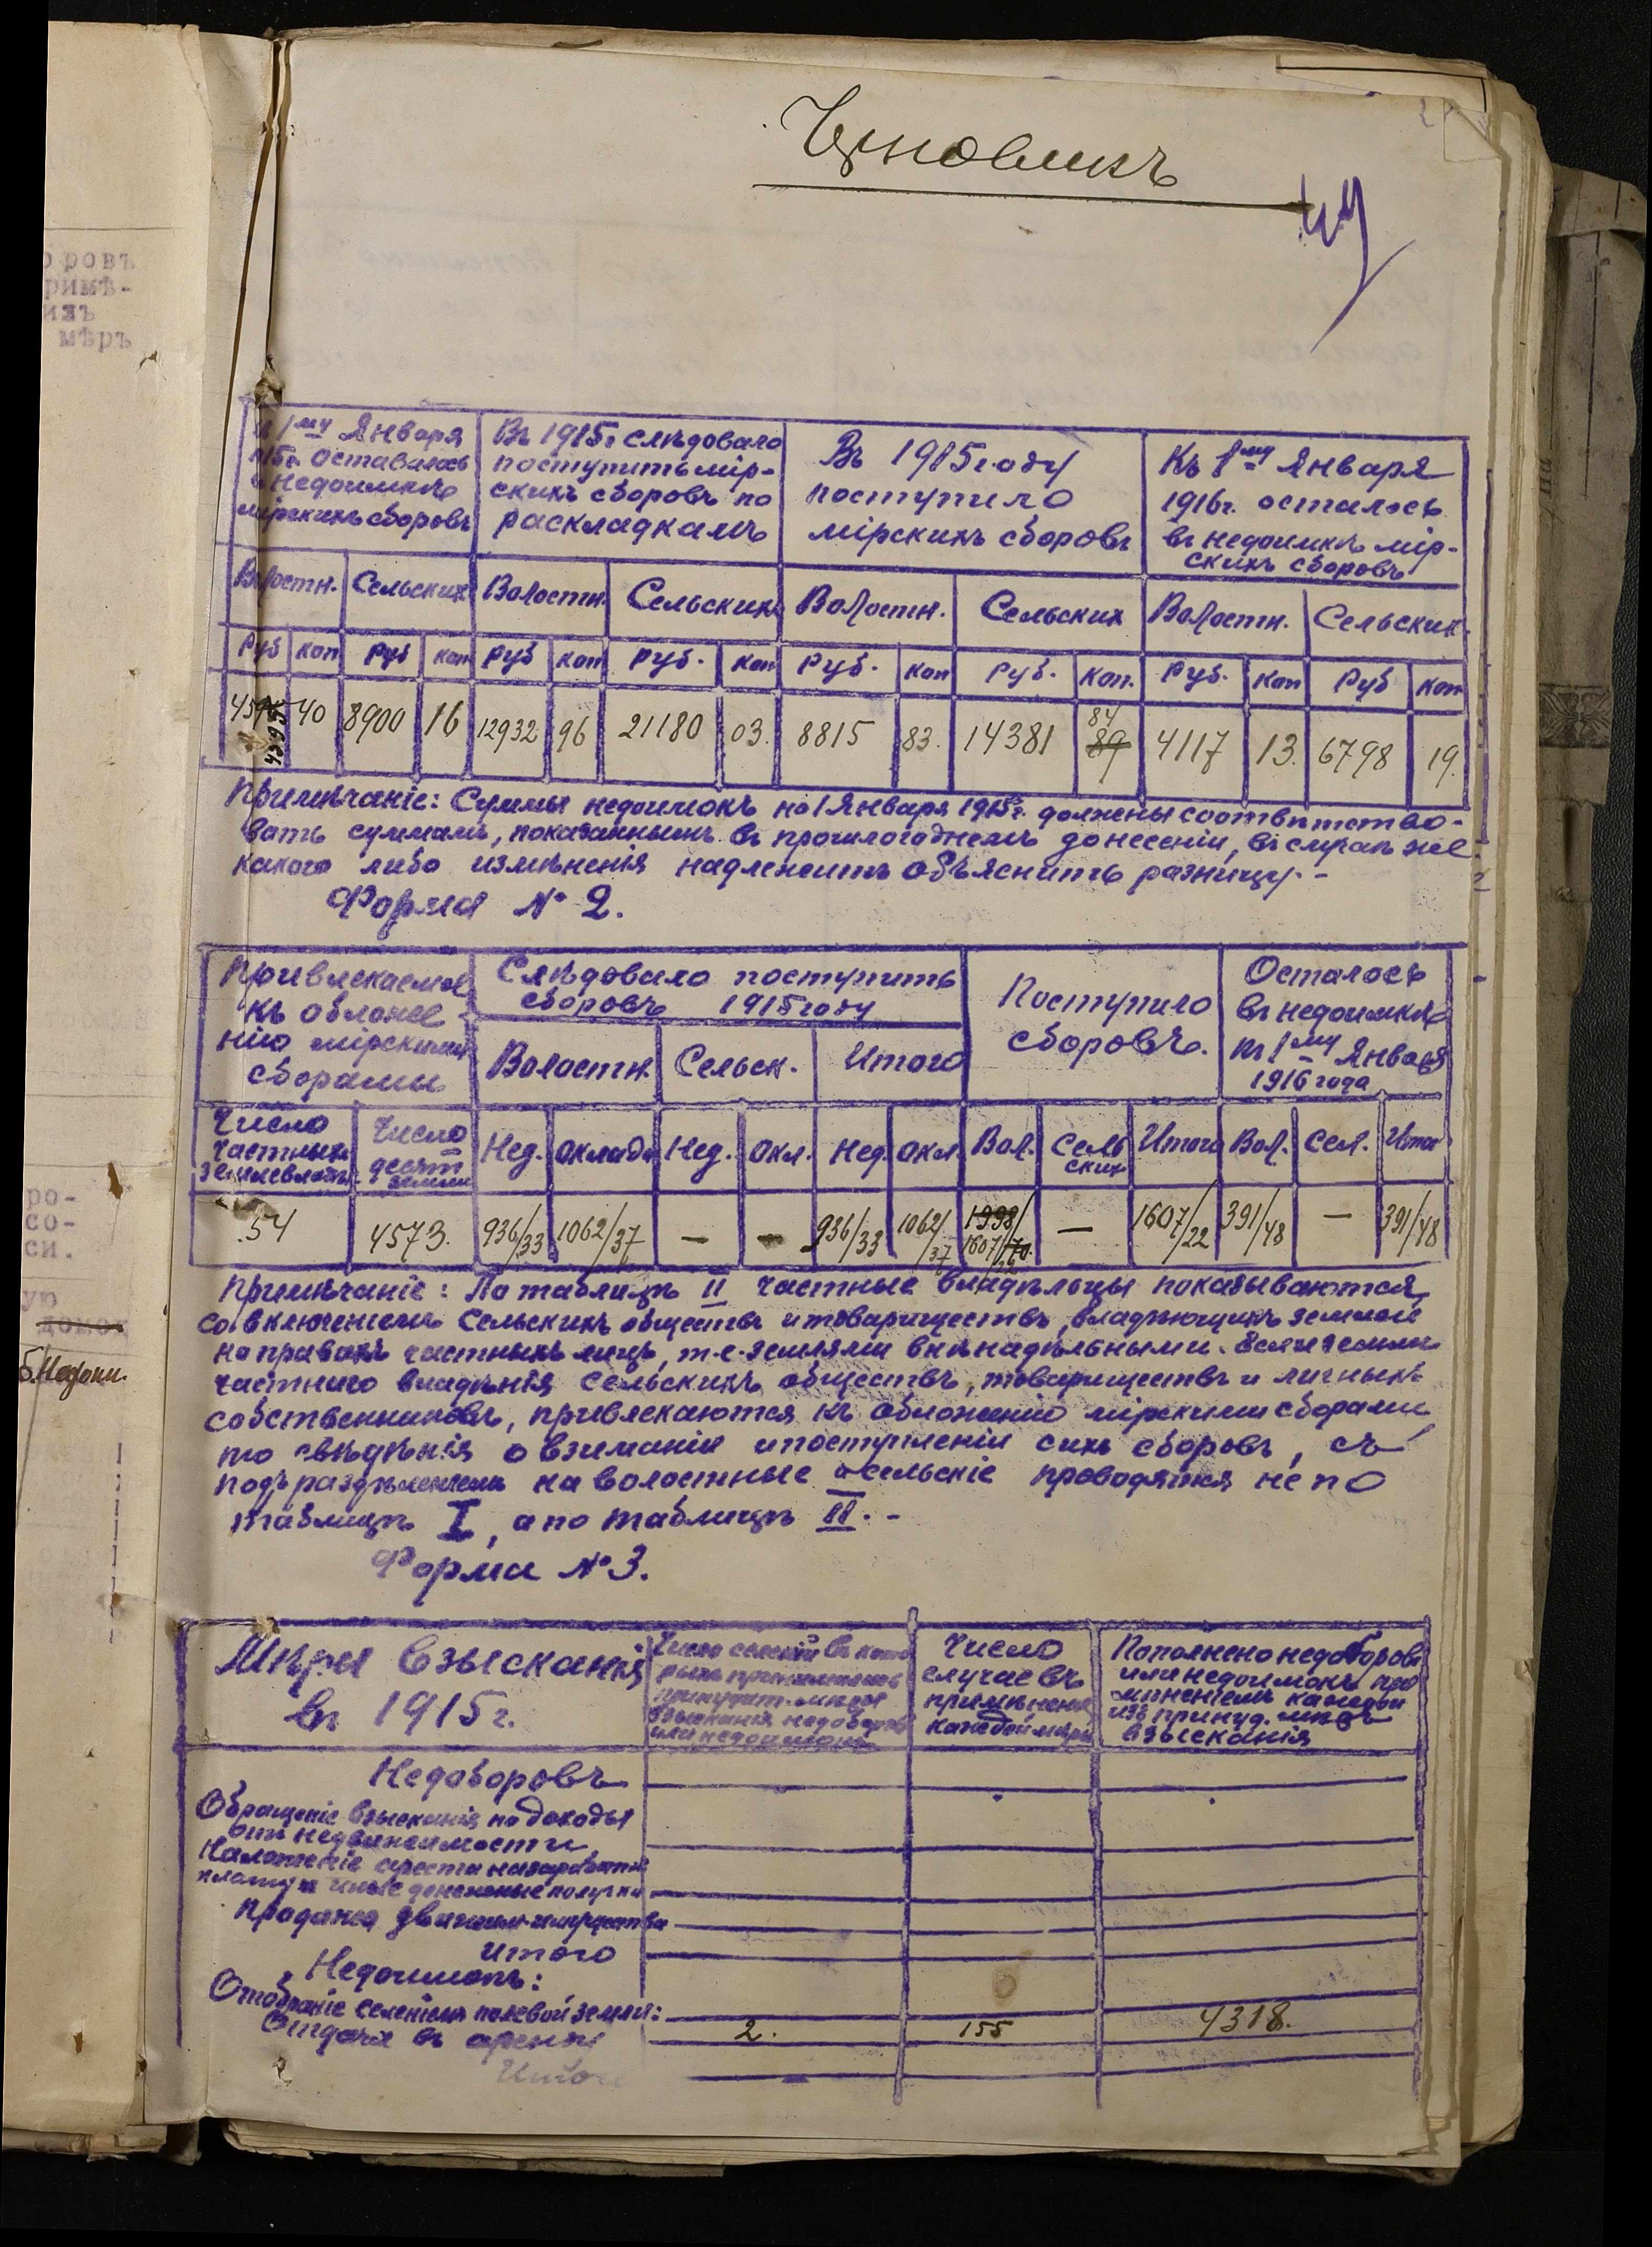 Черновикъ
49
оровъ
римѣ-
ихъ
мѣръ
1му Января
оставалось
недоимкѣ
мірскихъ сборовъ
Въ 1915г слѣдовало
поступить мір-
скихъ сборовъ по
раскладкамъ
Въ 1915 году
поступило
мірскихъ сборовъ
Къ 1му Января
1916г. осталось
въ недоимкѣ мір-
скихъ сборовъ
Волостн. Сельскихъ Волостн. Сельскихъ Волостн. Сельских Волостн. Сельских.
Руб коп Руб коп Руб коп Руб. коп Руб. коп Руб. Коп. Руб. коп Руб коп
40 8900 16 12932 96 21180 03. 8815 83. 14381 84 89 4117 13. 6798 19.
Примѣчаніе: Суммы недоимокъ на 1 Января 1915г. должны соотвѣтство-
вать суммамъ, показаннымъ въ прошлогоднемъ донесеніи, въ случаѣ же
какого либо измѣненія надлежитъ объяснить разницу. -
Форма № 2.
Привлекаемое
къ обложе
нію мірскими
сборами
Слѣдовало поступить
сборовъ 1915 году
Поступило
сборовъ.
Осталось
въ недоимкѣ
къ 1му Января
1916 года
Волостн. Сельск. Итого
Число
частныхъ
землевлад.
Число
десят
земли
Нед. Оклад. Нед. Окл. Нед. Окл. Вол. Сель
ских Итого Вол. Сел. Итог
54 4573. 936/33 1062/37 — — 936/33 1062/37 1998/ 1607/ — 1607/22 391/48 — 391/48
Примѣчаніе: По таблицѣ II частные владѣльцы показываются,
со включеніемъ сельскихъ обществъ и товариществъ, владѣющихъ землей
на правахъ частныхъ лицъ, т.е. землями внѣнадѣльными. Если земли
частнаго владѣнія сельскихъ обществъ, товариществъ и личныхъ
собственниковъ, привлекаются къ обложенію мірскими сборами,
то свѣдѣнія о взиманіи и поступленіи сихъ сборовъ, съ
подъраздѣленіемъ на волостные и сельскіе проводятся не по
таблицѣ I, а по таблицѣ II. -
Форма № 3.
ро-
со-
си.
ую
Недоим.
Мѣры взысканія
въ 1915г.
Число селеній въ кото
рыхъ примѣнялись
принудит. мѣры
взысканія недоборовъ
или недоимокъ
Число
случаевъ
примѣненія
каждой мѣры
Пополнено недоборовъ
или недоимокъ при
мѣненіемъ каждой
изъ принуд. мѣръ
взысканія
Недоборовъ
Обращеніе взысканія на доходы
отъ недвижимости
Наложеніе ареста на заработн
плату и иные денежные получки
Продажа движим. имущества
Итого
Недоимокъ:
Отобраніе селеніемъ полевой земли:
Отдача въ аренду 2. 155 4318.
Итого